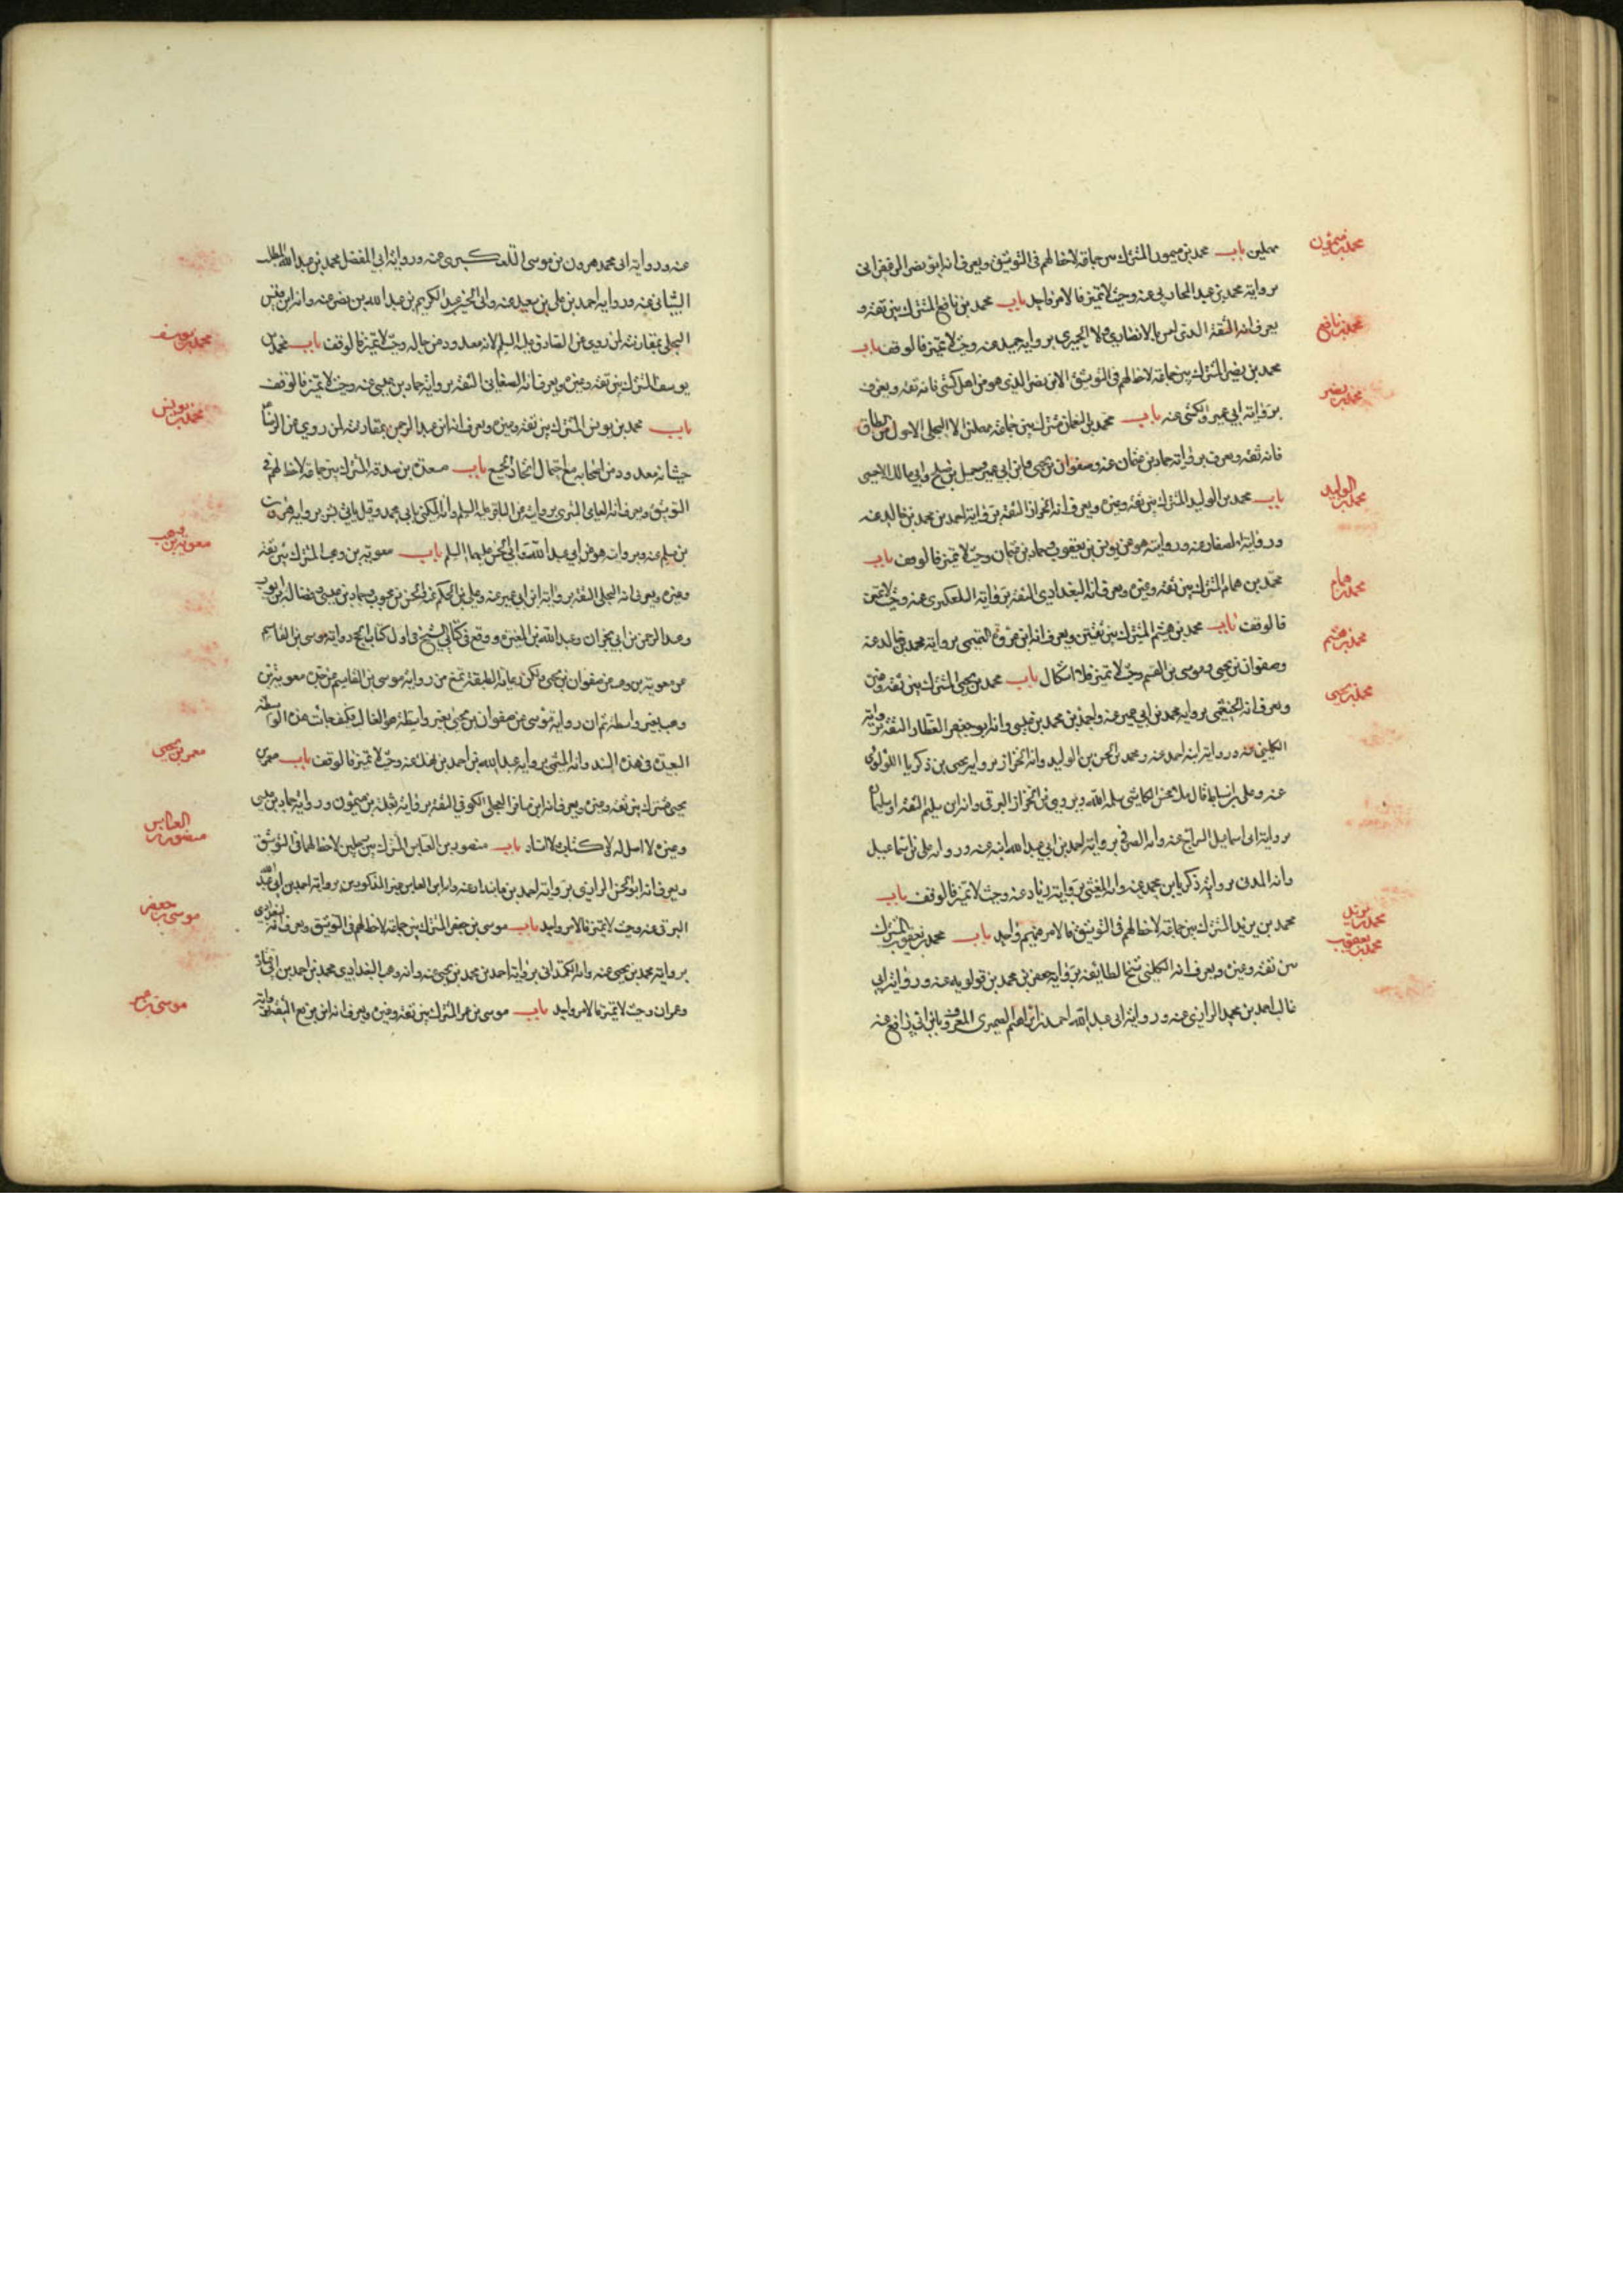 مهملين باب محمد بن ميمون المشترك بين جماعة لاحظ لهم في التوثيق ويعرف انه ابو نضر الزعفراني
برواية محمد بن عبد المحاربي عنه وحيث لا تميز فالامر واحد باب محمد بن نافع المشترك بين ثقة و
يعرف انه الثقة الذي ليس بالانصاري ولا الجيري برواية حميد عنه وحيث لا تميز فالوقف باب
محمد بن نضر المشترك بين جماعة لاحظ لهم في التوثيق الا ابن نضر الذي هو من اهل كش فانه ثقة ويعرف
برواية ابي عمرو الكشي عنه باب محمد بن النعمان مشترك بين جماعة مهملين الا البجلي الاحول مؤمن الطاق
فانه ثقة ويعرف برواية حماد بن عثمان عنه وصفوان بن يحيى وابن ابي عمير وجميل بن صالح وابي مالك الاحمسي
باب محمد بن الوليد المشترك بين ثقة وغيره ويعرف انه الخزاز الثقة برواية احمد بن محمد بن خالد عنه
ورواية الصفار عنه وروايته هو عن يونس بن يعقوب وحماد بن عثمان وحيث لا تميز فالوقف باب
محمد بن همام المشترك بين ثقة وغيره ويعرف انه البغدادي الثقة برواية التلعكبري عنه وحيث لا تميز
فالوقف باب محمد بن هيثم المشترك بين ثقتين ويعرف انه ابن عروة التميمي برواية محمد بن خالد عنه
وصفوان بن يحيى وموسى بن القسم وحيث لا تميز فلا اشكال باب محمد بن يحيى المشترك بين ثقة وغيره
ويعرف انه الخثعمي برواية محمد بن ابي عمير عنه واحمد بن محمد بن عيسى وانه ابو جعفر العطار الثقة برواية
الكليني عنه ورواية ابنه احمد عنه ومحمد بن الحسن بن الوليد وانه الخزاز برواية يحيى بن زكريا اللؤلؤي
عنه وعلى ويروي عن الخزاز البرقي وانه ابن سليم الثقة او سليمان
برواية ابي اسماعيل السراج عنه وانه الصيرفي برواية احمد بن ابي عبد الله ابنه عنه ورواية علي بن اسماعيل
وانه المدني برواية زكريا بن محمد عنه وانه المغيثي برواية زياد عنه وحيث لا تميز فالوقف باب
محمد بن يزيد المشترك بين جماعة لاحظ لهم في التوثيق فالامر فيهم واحد باب محمد بن يعقوب المشترك
بين ثقة وغيره ويعرف انه الكليني شيخ الطايفة برواية جعفر بن محمد بن قولويه عنه ورواية ابي
غالب احمد بن محمد الرازي عنه ورواية ابي عبد الله احمد بن ابراهيم الصيمري المعروف بابن ابي رافع عنه
محمد بن ميمون
محمد بن نافع
محمد بن نضر
محمد بن الوليد
محمد بن همام
محمد بن هيثم
محمد بن يحيى
محمد بن يزيد
محمد بن يعقوب
عنه ورواية ابي محمد هرون بن موسى التلعكبري عنه ورواية ابي المفضل محمد بن عبد الله المطلب
الشيباني عنه ورواية احمد بن علي بن سعيد عنه وابي الحسين عبد الكريم بن عبد الله بن نضر عنه وانه ابن قيس
البجلي بمقارنته لمن روى عن الصادق عليه السلم لانه معدود من رجاله وحيث لا تميز فالوقف باب محمد بن
يوسف المشترك بين ثقة وغيره ويعرف انه الصنعاني الثقة برواية حماد بن عيسى عنه وحيث لا تميز فالوقف
باب محمد بن يونس المشترك بين ثقة وغيره ويعرف انه ابن عبد الرحمن بمقارنته لمن روى عن الرضا ع
حيث انه معدود من اصحابه مع احتمال اتحاد الجميع باب مسعدة بن صدقة المشترك بين جماعة لاحظ لهم في
التوثيق ويعرف انه العامي البتري بروايته عن الباقر عليه السلم وانه المكنى بابي محمد وقيل بابي بشر برواية هرون
بن مسلم عنه وبروايته هو عن ابي عبد الله وابي الحسن عليهما السلم باب معوية بن وهب المشترك بين ثقة
وغيره ويعرف انه البجلي الثقة برواية ابن ابي عمير عنه وعلي بن الحكم عنه والحسن بن محبوب وحماد بن عيسى وفضالة بن ايوب
وعبد الرحمن بن ابي نجران وعبد الله بن المغيرة ووقع في كتابي الشيخ في اول كتاب الحج رواية موسى بن القاسم
عن معوية بن وهب عن صفوان بن يحيى ولكن رعاية الطبقة تمنع من رواية موسى بن القاسم عن معوية بن
وهب بغير واسطة ثم ان رواية موسى عن صفوان بن يحيى بغير واسطة هو الغالب فكيف جاءت هذه الواسطة
البعيدة في هذه السند وانه الميثمي برواية عبد الله بن احمد بن نهيك عنه وحيث لا تميز فالوقف باب معمر بن
يحيى مشترك بين ثقة وغيره ويعرف انه ابن سافر العجلي الكوفي الثقة برواية ثعلبة بن ميمون ورواية حماد بن عيسى
وغيره لا اصل له لا كتاب ولا اسناد باب منصور بن العباس المشترك بين مهملين لاحظ لهما في التوثيق
ويعرف انه ابو الحسن الرازي برواية احمد بن مابندار عنه وانه ابن العباس غير المذكورين برواية احمد بن ابي عبد الله
البرقي عنه وحيث لا تميز فالامر واحد باب موسى بن جعفر المشترك بين جماعة لاحظ لهم في التوثيق ويعرف انه البغدادي
برواية محمد بن يحيى عنه وانه الكمنداني برواية احمد بن محمد بن يحيى عنه وانه وهب البغدادي محمد بن احمد بن ابي قتادة
وعمران وحيث لا تميز فالامر واحد باب موسى بن عمر المشترك بين ثقة وغيره ويعرف انه ابن بزيع الثقة برواية
محمد بن يوسف
محمد بن يونس
معوية بن وهب
معمر بن يحيى
منصور بن العباس
موسى بن جعفر
موسى بن عمر